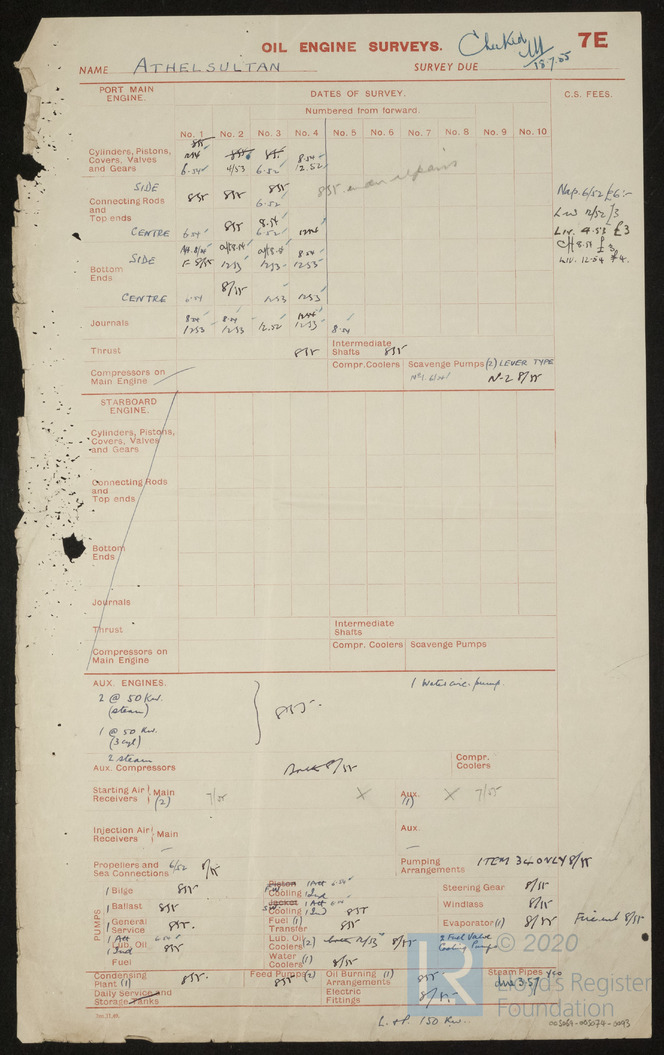 OIL ENGINE SURVEYS.
Checked
18.7.55
7E
NAME ATHELSULTAN
SURVEY DUE
PORT MAIN ENGINE.
DATES OF SURVEY.
C.S. FEES.
Numbered from forward.
No. 1 No. 2 No. 3 No. 4 No. 5 No. 6 No. 7 No. 8 No. 9 No. 10
855
Cylinders, Pistons, Covers, Valves and Gears
855 855 8.54
6.54 4/53 6.52 12.52
SIDE
855 855 855
6.52
Connecting Rods and Top ends
Nap. 6/52 £6:-
CENTRE
855 8.54
6.54 6.52
Liv. 4.53 £3
SIDE
8.54
Bottom Ends
12.53 12.53 12.53
Liv. 12.54 £4.
CENTRE
8/55
6.54 12.53 12.53
Journals
8.54 8.54
12.53 12.53 12.52 12.53 8.54
Thrust
855
Intermediate Shafts 855
Compressors on Main Engine
Compr. Coolers
Scavenge Pumps (2) LEVER TYPE
No1 6/54 No 2 8/55
STARBOARD ENGINE.
Cylinders, Pistons, Covers, Valves and Gears
Connecting Rods and Top ends
Bottom Ends
Journals
Thrust
Intermediate Shafts
Compressors on Main Engine
Compr. Coolers
Scavenge Pumps
AUX. ENGINES.
1 Water circ. pump.
2 @ 50 Kw.
(steam)
855.
1 @ 50 Kw.
(3 cyl)
2 steam
Aux. Compressors
8/55
Compr. Coolers
Starting Air Receivers Main (2) 7/55 X
Aux. (1) X 7/55
Injection Air Receivers Main
Aux.
Propellers and Sea Connections 6/52 8/55
Pumping Arrangements ITEM 34 ONLY 8/55
PUMPS
1 Bilge 855
Piston Cooling 1 Att 6.54
1 Ind
Steering Gear 8/55
1 Ballast 855
Jacket Cooling 1 Att
(1 Ind) 855
Windlass 8/55
1 General Service 855.
Fuel (1) Transfer 855
Evaporator (1) 8/55
8/55
1 Att
1 Ind
Lub. Oil 855
Lub. Oil Coolers (2) 12/53 8/55
3 Fuel Valve Cooling Pumps
Fuel
Water Coolers (1) 8/55
Condensing Plant (1) 855.
Feed Pumps (2) 855
Oil Burning (1) Arrangements 855
Steam Pipes yes
due 3.57
Daily Service and Storage Tanks
Electric Fittings 8/55.
L. & P. 150 Kw.
© 2020
LR
Lloyd's Register Foundation
005064-005074-0093